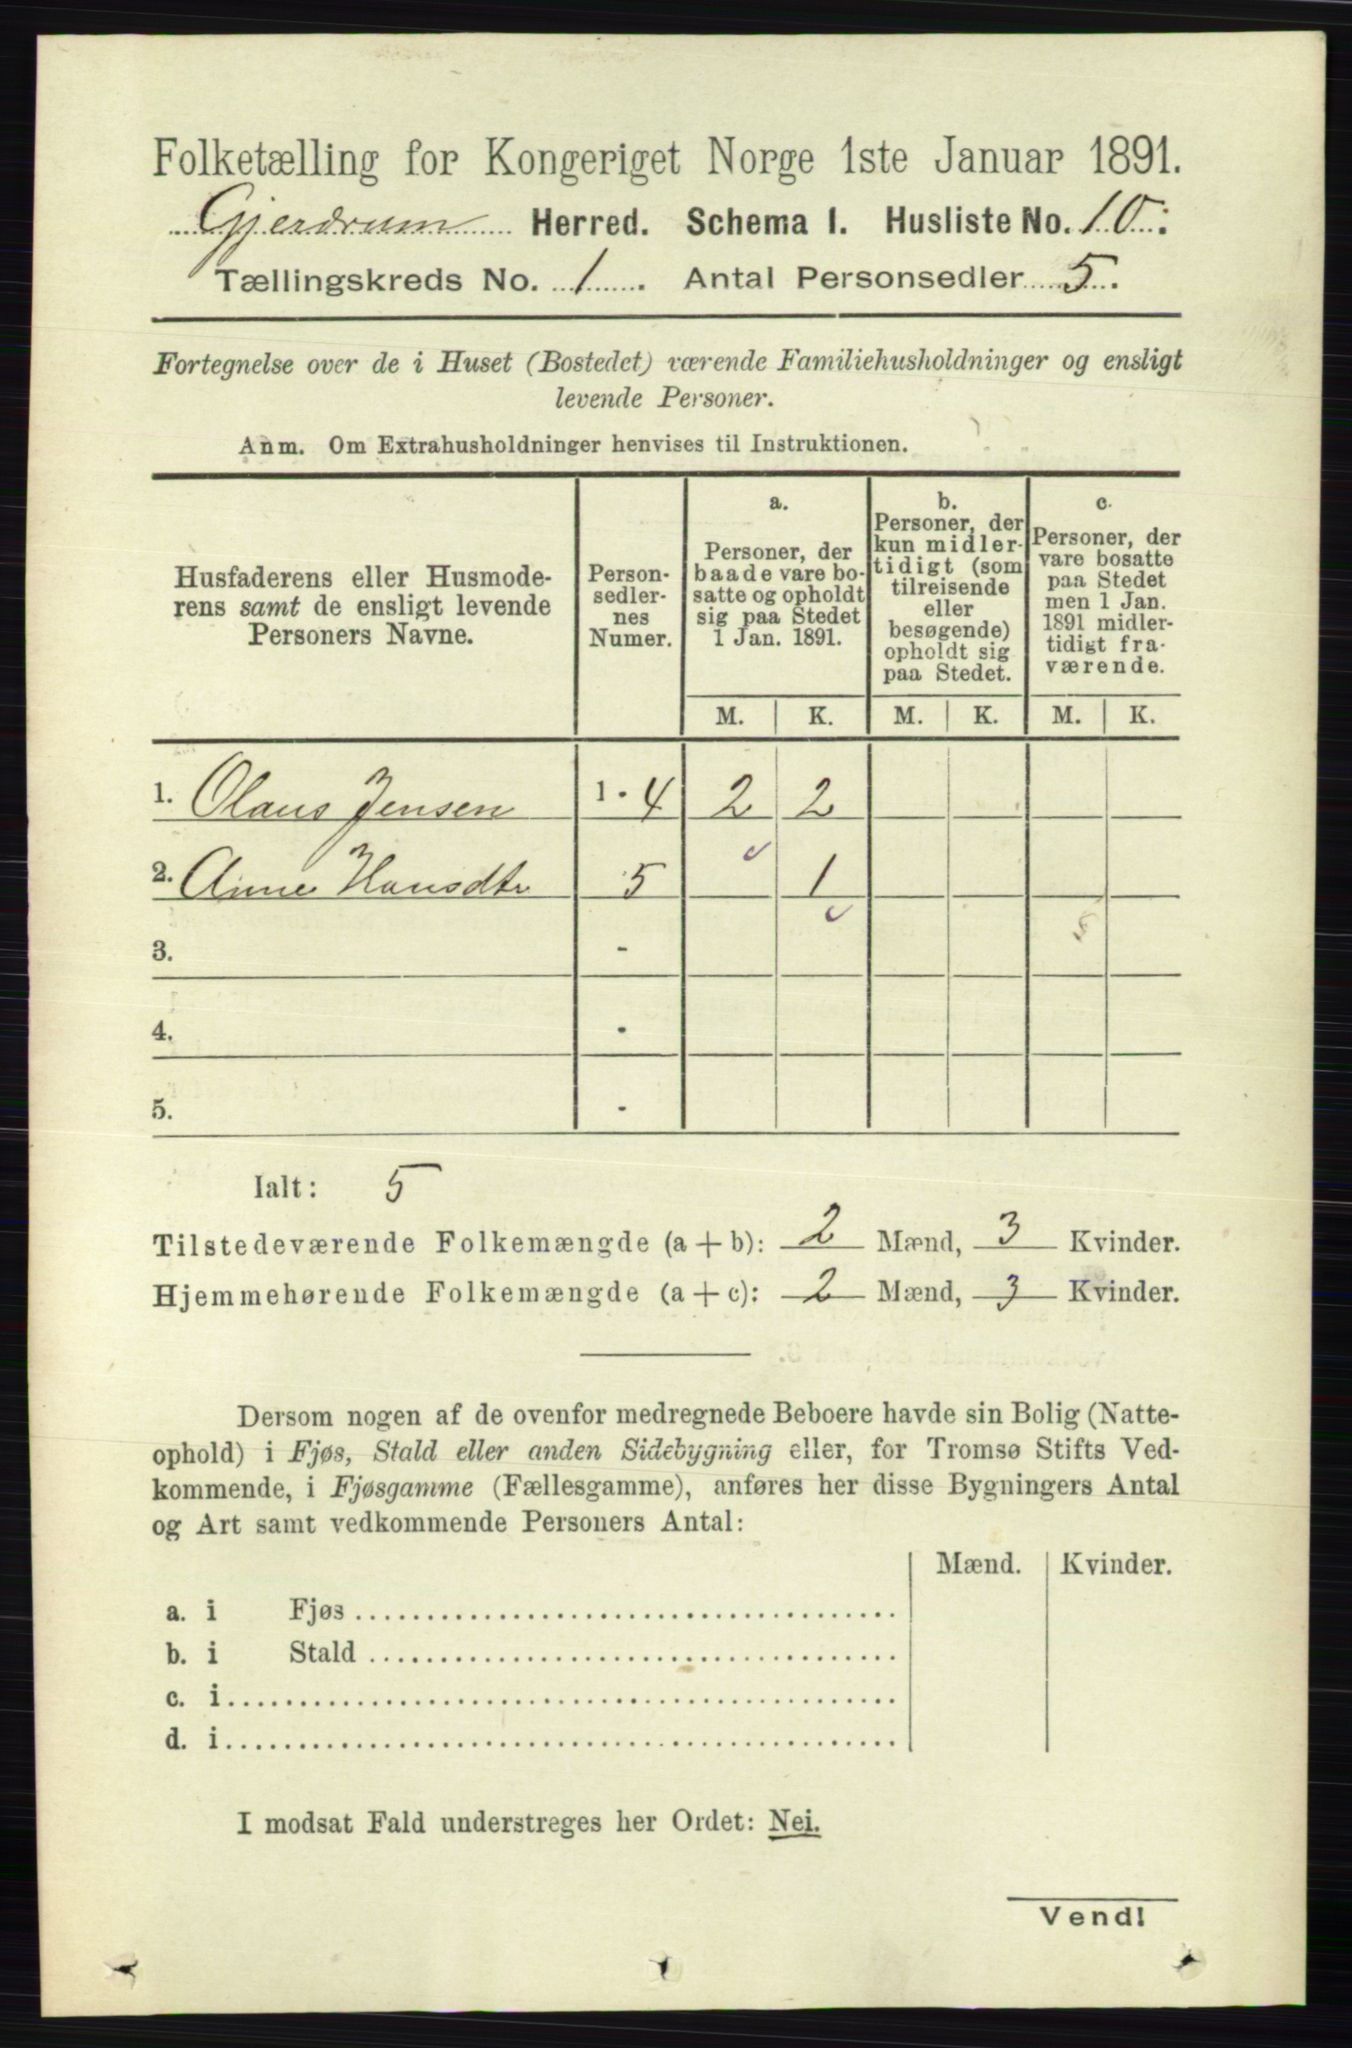 Folketælling for Kongeriget Norge 1ste Januar 1891.
Gjerdrum Herred. Schema I. Husliste No. 10.
Tællingskreds No. 1. Antal Personsedler 5.
Fortegnelse over de i Huset (Bostedet) værende Familiehusholdninger og ensligt
levende Personer.
Anm. Om Extrahusholdninger henvises til Instruktionen.
Husfaderens eller Husmode-
rens samt de ensligt levende
Personers Navne.
Person-
sedler-
nes
Numer.
a.
Personer, der
baade vare bo-
satte og opholdt
sig paa Stedet
1 Jan. 1891.
b.
Personer, der
kun midler-
tidigt (som
tilreisende
eller
besøgende)
opholdt sig
paa Stedet.
c.
Personer, der
vare bosatte
paa Stedet
men 1 Jan.
1891 midler-
tidigt fra-
værende.
M. K. M. K. M. K.
1. Olaus Jensen 1 - 4 2 2
2. Anne Hansdtr 5 1
3. -
4. -
5. -
Ialt: 5
Tilstedeværende Folkemængde (a + b): 2 Mænd, 3 Kvinder.
Hjemmehørende Folkemængde (a + c): 2 Mænd, 3 Kvinder.
Dersom nogen af de ovenfor medregnede Beboere havde sin Bolig (Natte-
ophold) i Fjøs, Stald eller anden Sidebygning eller, for Tromsø Stifts Ved-
kommende, i Fjøsgamme (Fællesgamme), anføres her disse Bygningers Antal
og Art samt vedkommende Personers Antal:
Mænd. Kvinder.
a. i Fjøs
b. i Stald
c. i
d. i
I modsat Fald understreges her Ordet: Nei.
Vend!